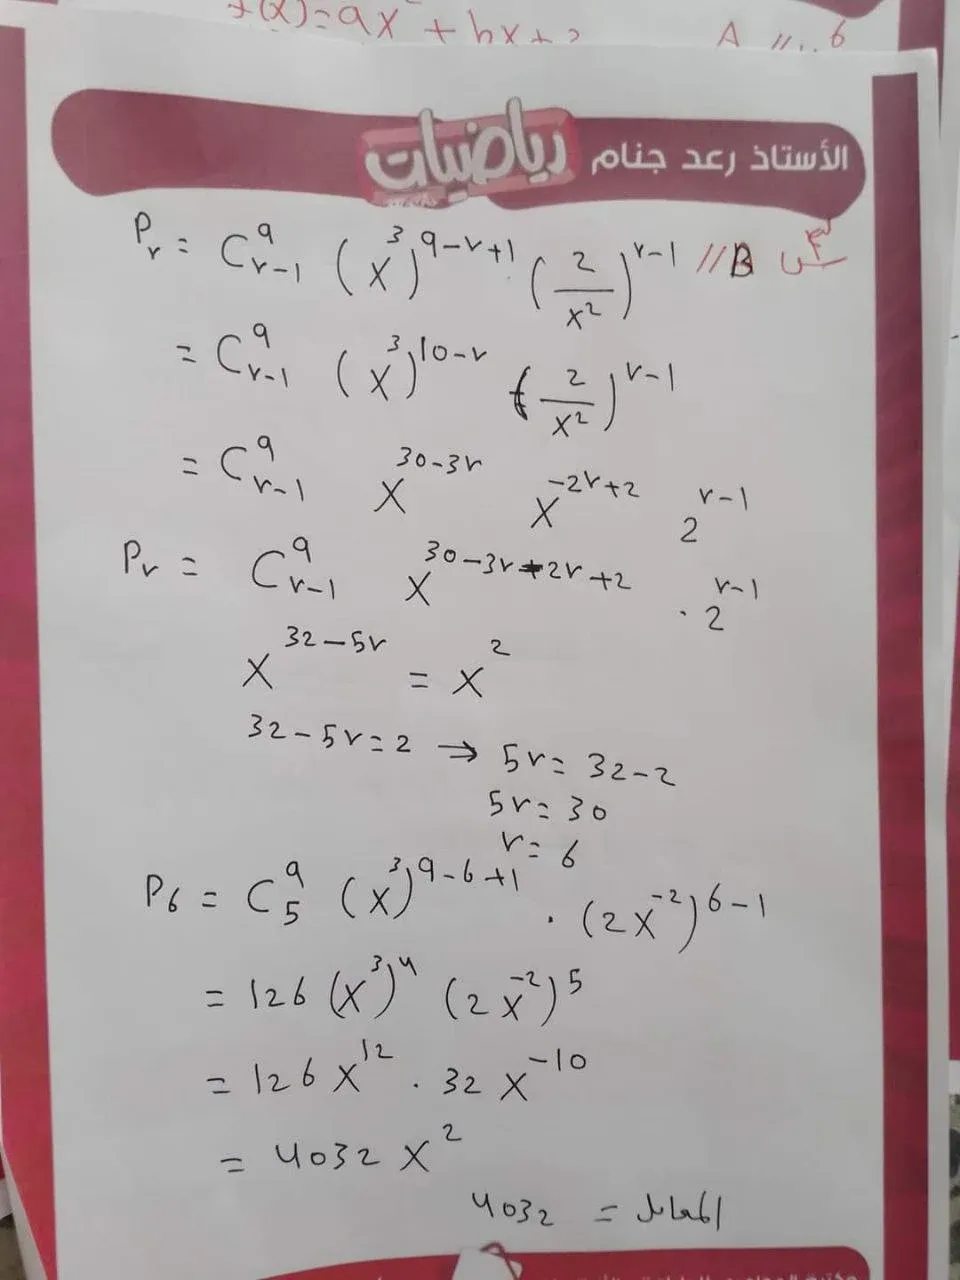 f(x)=ax² + bx+3 A // 6
الأستاذ رعد جنام رياضيات
س٣ B// P_r = C^9_{r-1} (x^3)^{9-r+1} (2/x^2)^{r-1}
= C^9_{r-1} (x^3)^{10-r} (2/x^2)^{r-1}
= C^9_{r-1} x^{30-3r} x^{-2r+2} 2^{r-1}
P_r = C^9_{r-1} x^{30-3r-2r+2} . 2^{r-1}
x^{32-5r} = x^2
32-5r=2 ⇒ 5r=32-2
5r=30
r=6
P_6 = C^9_5 (x^3)^{9-6+1} . (2x^{-2})^{6-1}
= 126 (x^3)^4 (2x^{-2})^5
= 126 x^{12} . 32 x^{-10}
= 4032 x^2
المعامل = 4032